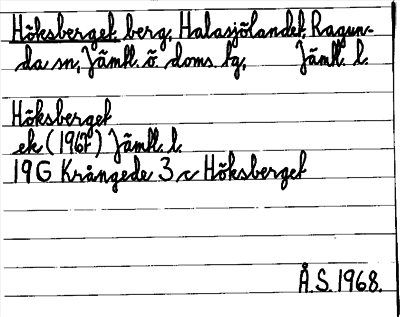 Höksberget, berg, Halasjölandet, Ragun-
da sn, Jämtl. ö. doms. tg, Jämtl. l.
Höksberget
ek (1967) Jämtl. l.
19G Krångede 3 c Höksberget
Å.S. 1968.